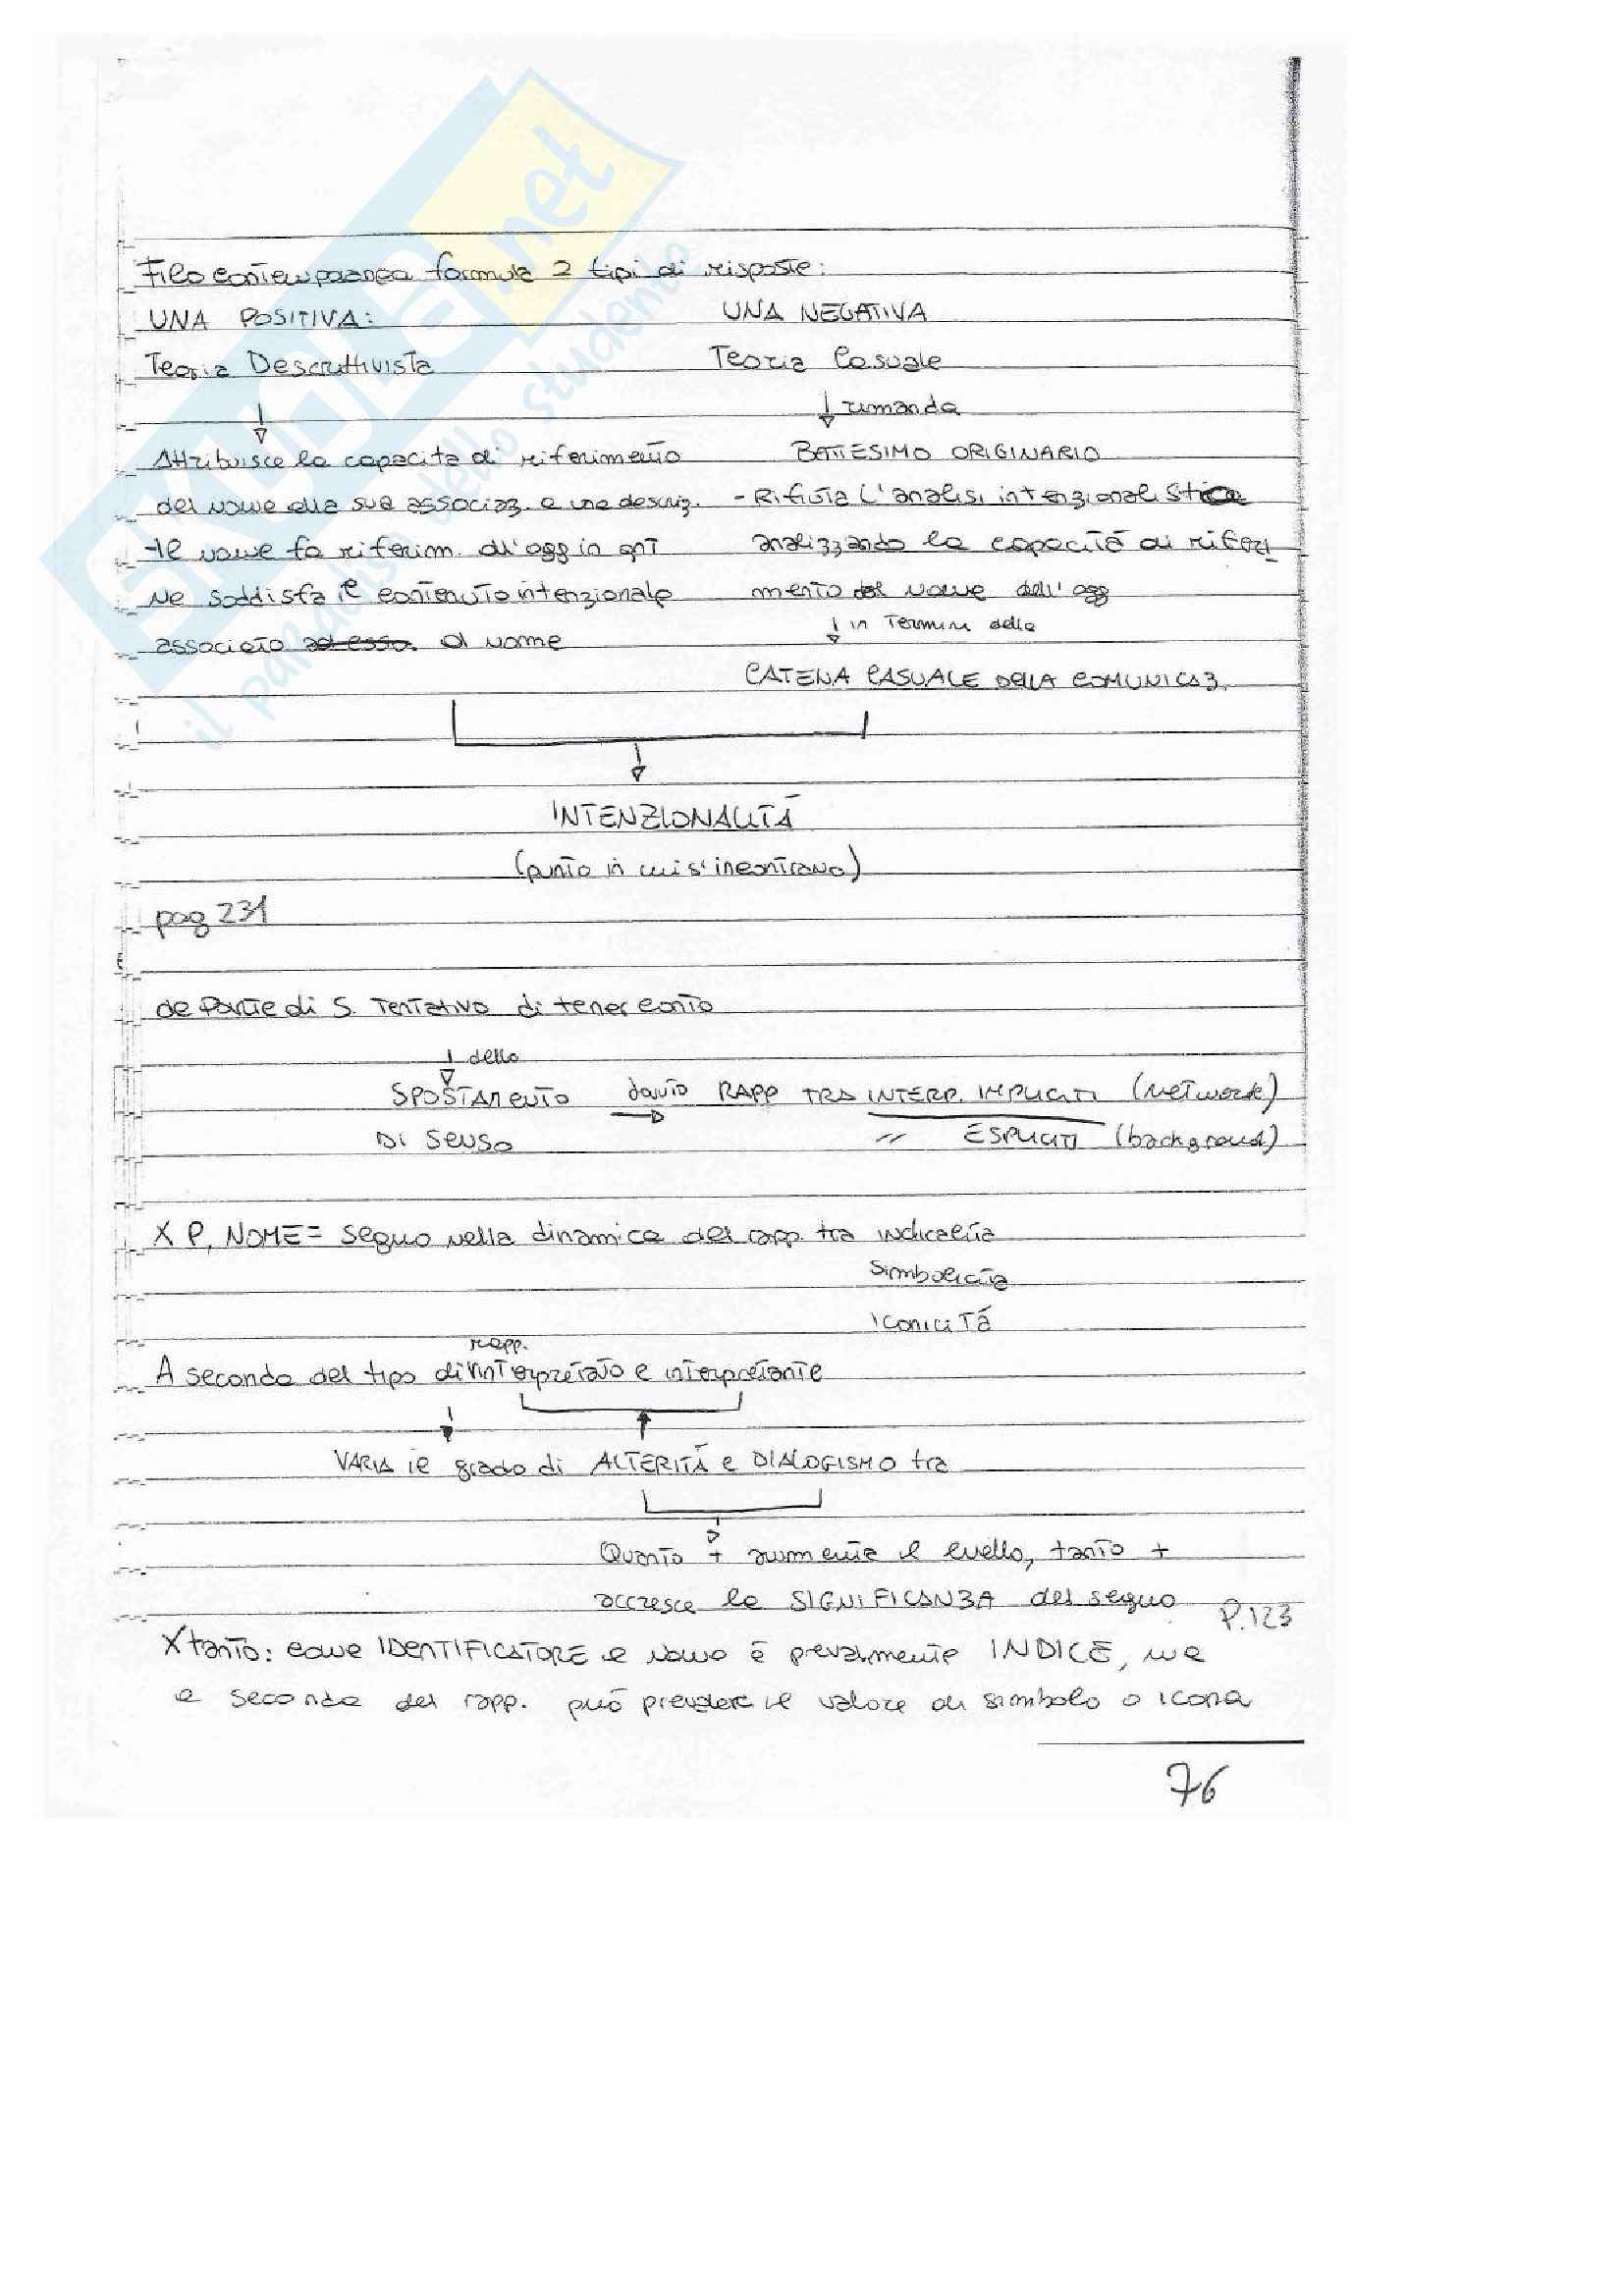 Filo contemporanea formula 2 tipi di risposte:
UNA POSITIVA: UNA NEGATIVA
Teoria Descrittivista Teoria Casuale
rimanda
Attribuisce la capacità di riferimento BATTESIMO ORIGINARIO
del nome alla sua associaz. a una descriz. - Rifiuta l'analisi intenzionalistica
- Il nome fa riferim. all'ogg in qnt analizzando la capacità di riferi
ne soddisfa il contenuto intenzionale mento del nome dell'ogg
associato ad esso. al nome in Termini della
CATENA CASUALE DELLA COMUNICAZ.
INTENZIONALITÁ
(punto in cui s'incontrano)
pag 231
da Parte di S. Tentativo di tener conto
dello
SPOSTAMENTO dovuto RAPP TRA INTERP. IMPLICITI (Network)
DI SENSO " ESPLICITI (background)
X P, NOME = segno nella dinamica del rapp. tra indicalità
Simbolicità
ICONICITÁ
rapp.
A seconda del tipo di interpretato e interpretante
VARIA il grado di ALTERITÁ e DIALOGISMO tra
Quanto + aumenta il livello, tanto +
accresce la SIGNIFICANZA del segno P.123
X tanto: come IDENTIFICATORE il nome è prevalmente INDICE, ma
a seconda del rapp. può prendere il valore di simbolo o icona
76
SKUOLA.net
il paradiso dello studente